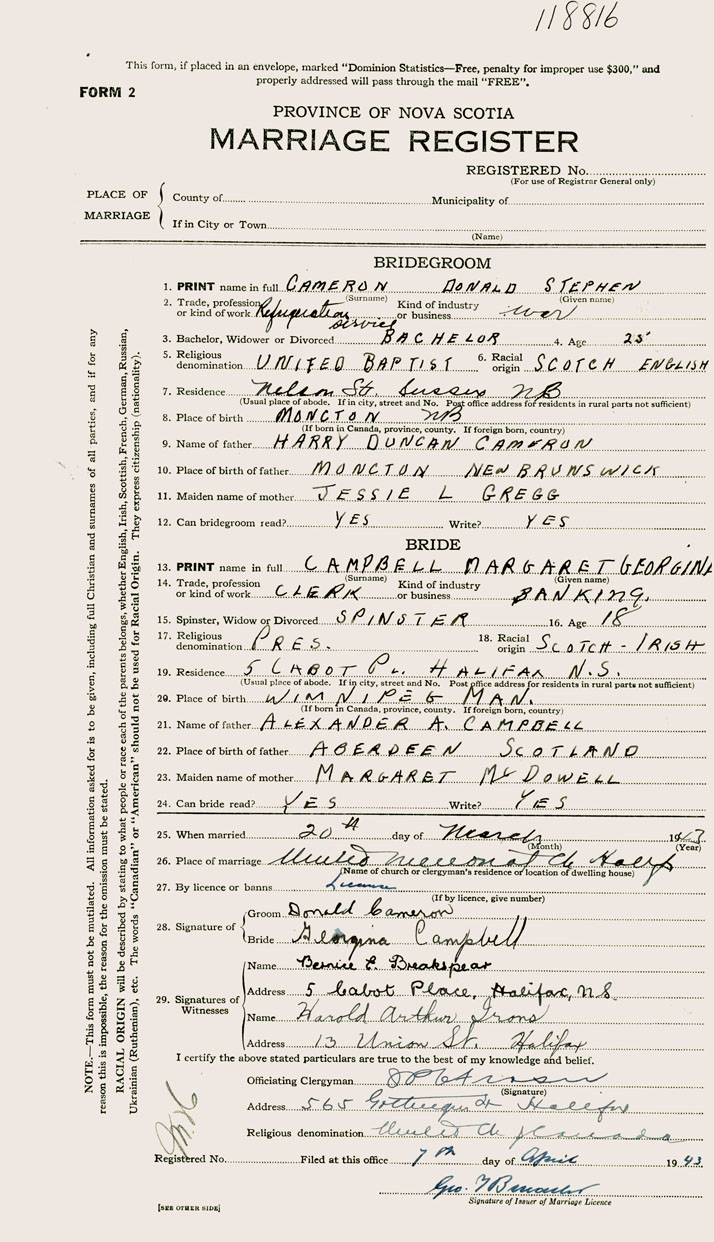 118816
This form, if placed in an envelope, marked "Dominion Statistics—Free, penalty for improper use $300," and
properly addressed will pass through the mail "FREE".
FORM 2
PROVINCE OF NOVA SCOTIA
MARRIAGE REGISTER
REGISTERED No.
(For use of Registrar General only)
PLACE OF MARRIAGE
County of Municipality of
If in City or Town
(Name)
BRIDEGROOM
1. PRINT name in full CAMERON DONALD STEPHEN
(Surname) (Given name)
2. Trade, profession or kind of work Refrigeration service Kind of industry or business war
3. Bachelor, Widower or Divorced BACHELOR 4. Age 25
5. Religious denomination UNITED BAPTIST 6. Racial origin SCOTCH ENGLISH
7. Residence Nelson St. Sussex NB
(Usual place of abode. If in city, street and No. Post office address for residents in rural parts not sufficient)
8. Place of birth MONCTON NB
(If born in Canada, province, county. If foreign born, country)
9. Name of father HARRY DUNCAN CAMERON
10. Place of birth of father MONCTON NEW BRUNSWICK
11. Maiden name of mother JESSIE L GREGG
12. Can bridegroom read? YES Write? YES
BRIDE
13. PRINT name in full CAMPBELL MARGARET GEORGINA
(Surname) (Given name)
14. Trade, profession or kind of work CLERK Kind of industry or business BANKING.
15. Spinster, Widow or Divorced SPINSTER 16. Age 18
17. Religious denomination PRES. 18. Racial origin SCOTCH - IRISH
19. Residence 5 CABOT PL. HALIFAX N.S.
(Usual place of abode. If in city, street and No. Post office address for residents in rural parts not sufficient)
20. Place of birth WINNIPEG MAN.
(If born in Canada, province, county. If foreign born, country)
21. Name of father ALEXANDER A. CAMPBELL
22. Place of birth of father ABERDEEN SCOTLAND
23. Maiden name of mother MARGARET McDOWELL
24. Can bride read? YES Write? YES
25. When married 20th day of March 1943
(Month) (Year)
26. Place of marriage United Memorial Ch Halifx
(Name of church or clergyman's residence or location of dwelling house)
27. By licence or banns License
(If by licence, give number)
28. Signature of
Groom Donald Cameron
Bride Georgina Campbell
29. Signatures of Witnesses
Name Bernice E. Breakspear
Address 5 Cabot Place, Halifax, N.S.
Name Harold Arthur Irons
Address 13 Union St. Halifax
I certify the above stated particulars are true to the best of my knowledge and belief.
Officiating Clergyman
(Signature)
Address 565 Gottingen St Halifax
Religious denomination United Ch of Canada
Registered No. Filed at this office 7th day of April 1943
Geo.
Signature of Issuer of Marriage Licence
[SEE OTHER SIDE]
NOTE.—This form must not be mutilated. All information asked for is to be given, including full Christian and surnames of all parties, and if for any
reason this is impossible, the reason for the omission must be stated.
RACIAL ORIGIN will be described by stating to what people or race each of the parents belongs, whether English, Irish, Scottish, French, German, Russian,
Ukrainian (Ruthenian), etc. The words "Canadian" or "American" should not be used for Racial Origin. They express citizenship (nationality).